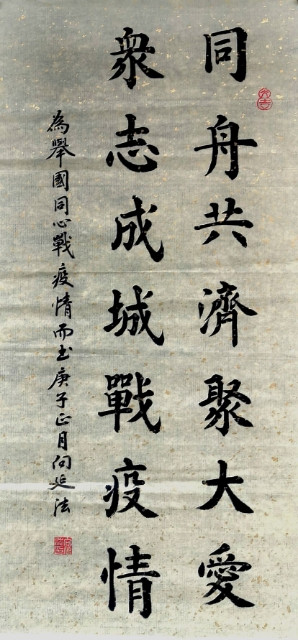 同舟共濟聚大愛
衆志成城戰疫情
為舉國同心戰疫情而書庚子正月向延法